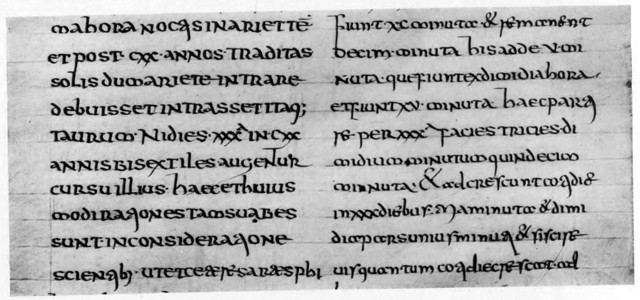 et post · cxc · annos traditas
solis dum ariete intrare
debuisset intrasset itaq;
taurum · Ni dies · xxx in cxc
annis bisextiles augentur
cursu illius · haec et huius
modi rationes tam suabes
sunt in consideratione
scientib; · ut et
fiunt xc minuta & remanent
decim minuta his adde · v · mi
nuta · que fiunt ex dimidia hora
et fiunt xv · minuta haec parti
re · per xxx facies tricies · di
midium minutum quindecim
minuta · & adcrescunt cotidie
in xxx diebus · minuta & dimi
dia pars unius minuti & si scire
uis quantum cotidie crescat ad